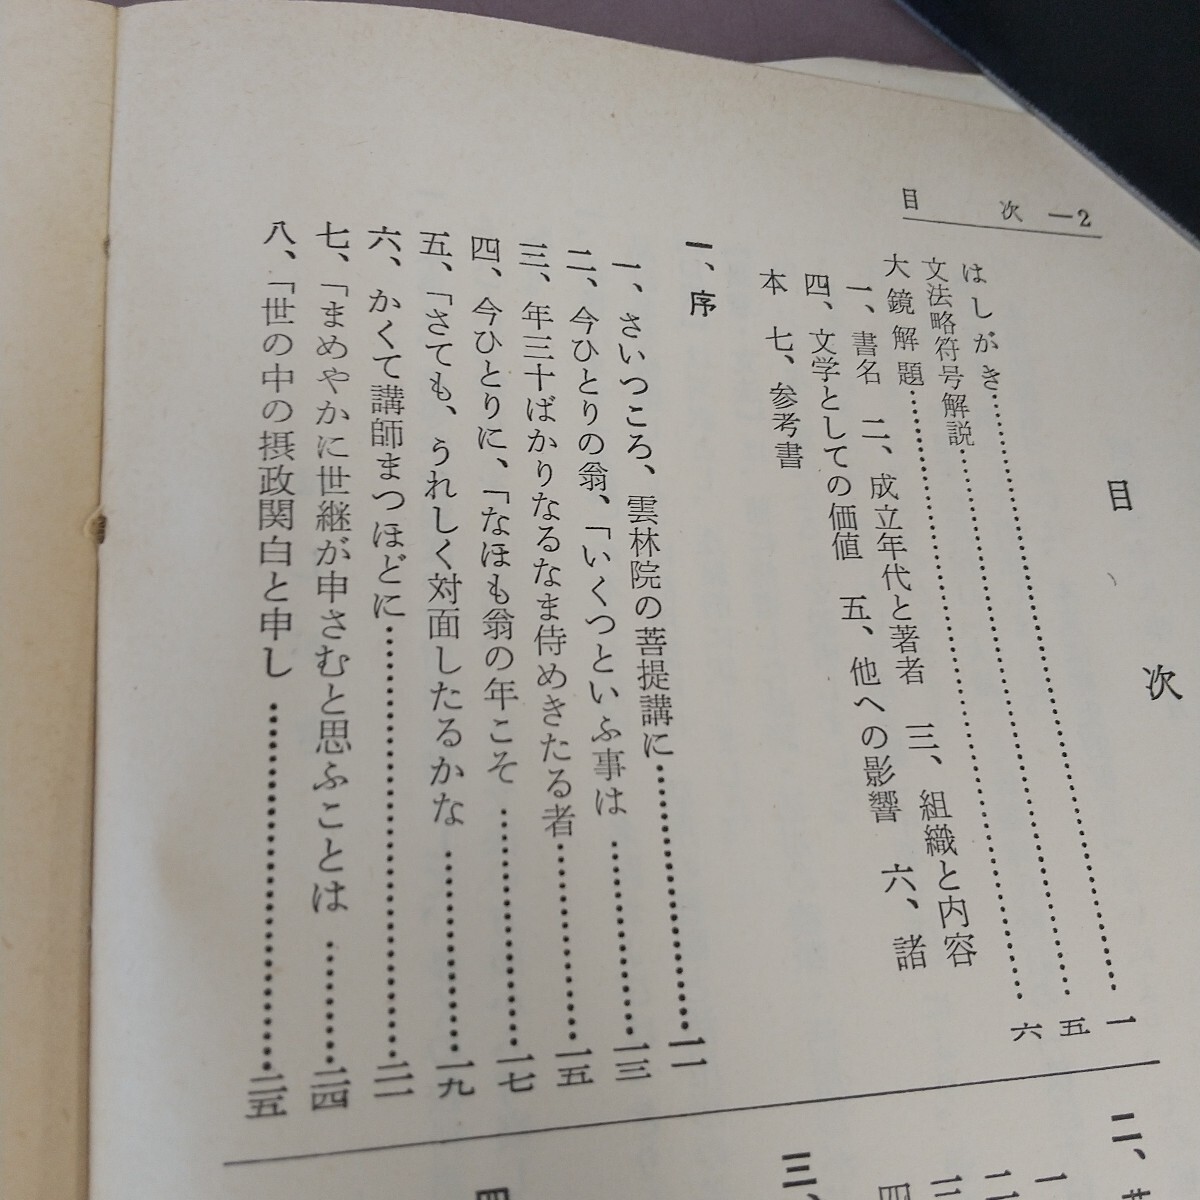 目 次 —2
目 次
はしがき…………一
文法略符号解説…………五
大鏡解題…………六
一、書名 二、成立年代と著者 三、組織と内容
四、文学としての価値 五、他への影響 六、諸
本 七、参考書
一、序
一、さいつころ、雲林院の菩提講に…………一一
二、今ひとりの翁、「いくつといふ事は…………一三
三、年三十ばかりなるなま侍めきたる者…………一五
四、今ひとりに、「なほも翁の年こそ…………一七
五、「さても、うれしく対面したるかな…………一九
六、かくて講師まつほどに…………二一
七、「まめやかに世継が申さむと思ふことは…………二四
八、「世の中の摂政関白と申し…………二五
二、
一
二
三
四
三、
四